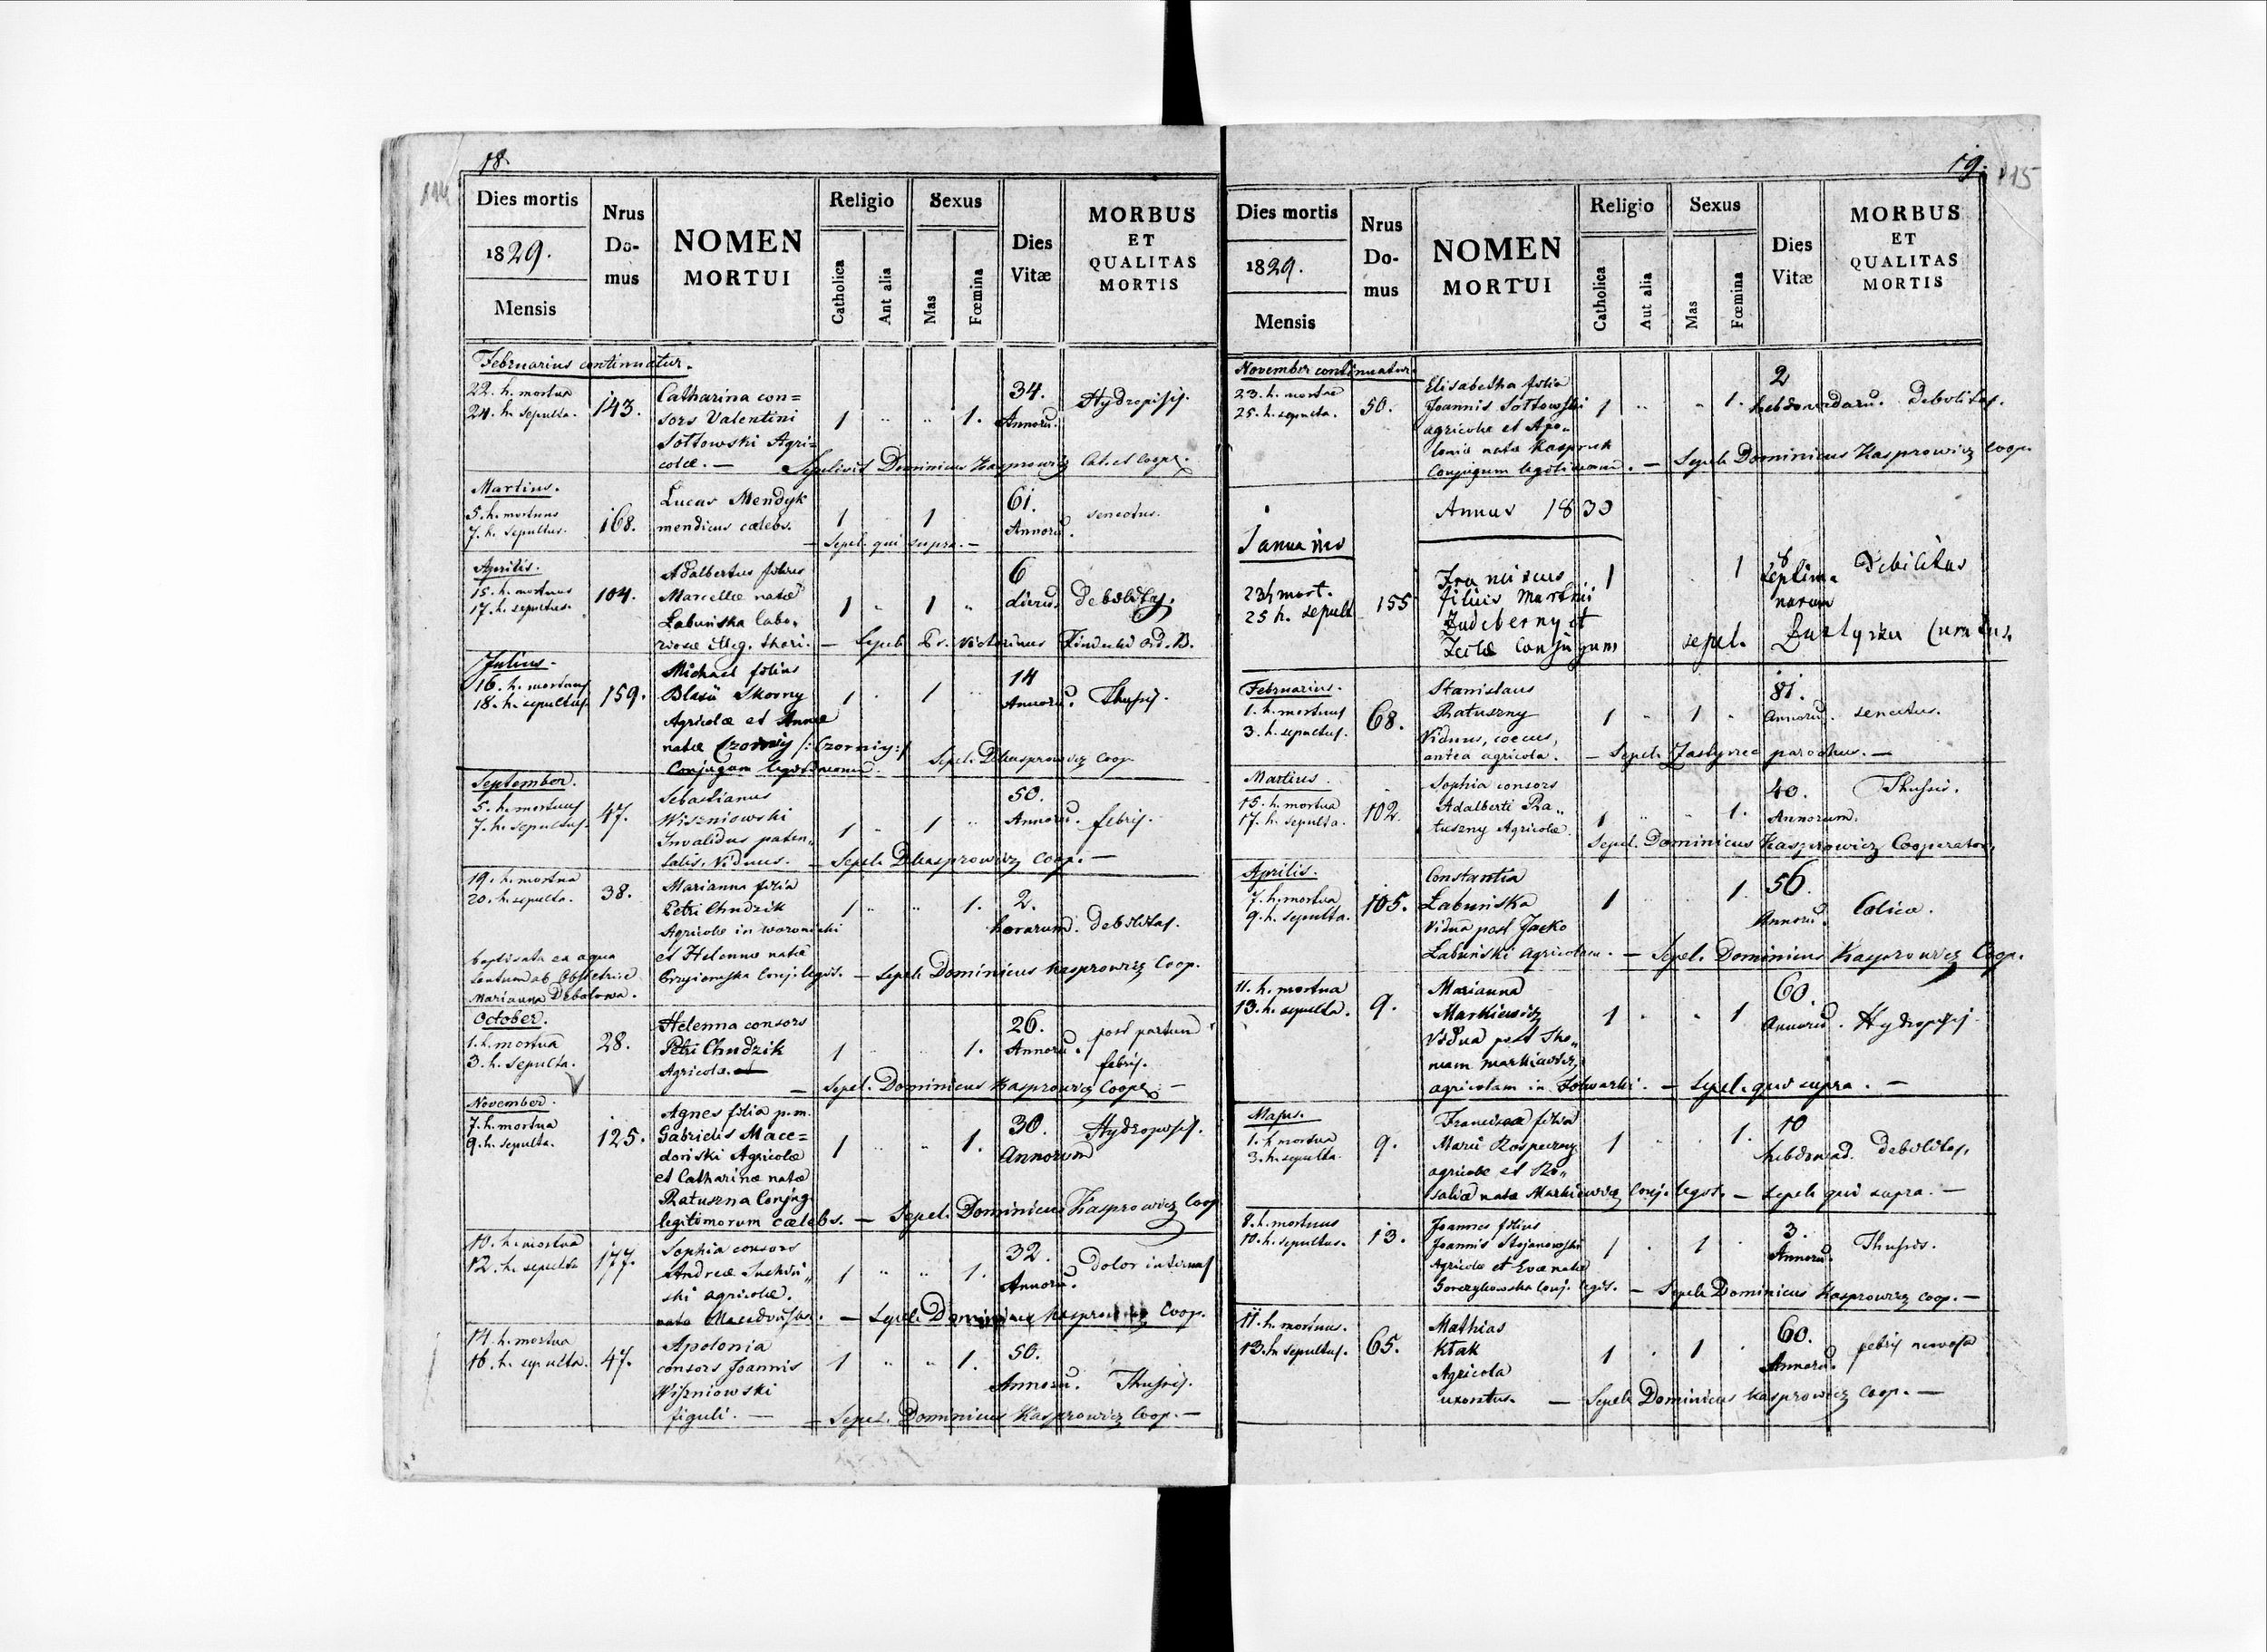 18.
Dies mortis
1829.
Mensis
Nrus
Do-
mus
NOMEN
MORTUI
Religio
Catholica
Aut alia
Sexus
Mas
Fœmina
Dies
Vitæ
MORBUS
ET
QUALITAS
MORTIS
Februarius continuatur.
22. h. mortua
24. h. sepulta.
143.
Catharina con=
sors Valentini
Sottowski Agri=
colæ. —
1 " " 1.
34.
Annoru.
Hydropisis.
Sepelivit Dominicus Kasprowicz Cat. et Coope.
Martius.
5. h. mortuus
7. h. sepultus.
168.
Lucas Mendyk
mendicus cœlebs.
1 1
61.
Annoru.
senectus.
— Sepel. qui supra. —
Aprilis.
15. h. mortuus
17. h. sepultus.
104.
Adalbertus filius
Marcellæ natæ
Łabuńska labo„
riosæ illeg. thori.
1 " 1 "
6
dieru.
Debilitas.
— Sepel. Victorinus
Julius.
16. h. mortuus
18. h. sepultus.
159.
Michael filius
Blasii Skorny
Agricolæ et Annæ
natæ Czorniy /: Czorniy :/
Conjugum legitimorum.
1 " 1 "
14
Annoru.
Thusis.
Sepel. D Kasprowicz Coop.
September.
5. h. mortuus
7. h. sepultus.
47.
Sebastianus
Wiszniowski
Invalidus paten„
talis. Viduus.
1 " 1 "
50.
Annoru.
febris.
— Sepel. D Kasprowicz Coop. —
19. h. mortua
20. h. sepulta.
38.
Marianna filia
Petri Chudzik
Agricolæ in
et Helenna natæ
Conj. legit.
1 " " 1.
2.
horarum.
Debilitas.
baptisata ex aqua
tantum ab Obstetrice
Marianna Debatowa.
— Sepel. Dominicus Kasprowicz Coop.
October.
1. h. mortua
3. h. sepulta.
28.
Helenna consors
Petri Chudzik
Agricolæ.
1 " " 1.
26.
Annoru.
post partum
febris.
— Sepel. Dominicus Kasprowicz Coope. —
November.
7. h. mortua
9. h. sepulta.
125.
Agnes filia p.m.
Gabrielis Mace=
doński Agricolæ
et Catharinæ natæ
Ratuszna Conjug.
legitimorum cælebs.
1 " " 1.
30.
Annorum
Hydropisis.
— Sepel. Dominicus Kasprowicz Coop
10. h. mortua
12. h. sepulta
177.
Sophia consors
Andreæ
ski agricolæ.
nata
1 " " 1.
32.
Annoru.
Dolor internus
— Sepel. Dominicus Kasprowicz Coop.
14. h. mortua
16. h. sepulta.
47.
Apolonia
consors Joannis
Wiszniowski
figuli. —
1 " " 1.
50.
Annoru.
Thusis.
— Sepel. Dominicus Kasprowicz Coop. —
19.
115
Dies mortis
1829.
Mensis
Nrus
Do-
mus
NOMEN
MORTUI
Religio
Catholica
Aut alia
Sexus
Mas
Fœmina
Dies
Vitæ
MORBUS
ET
QUALITAS
MORTIS
November continuatur.
23. h. mortua
25. h. sepulta.
50.
Elisabetha filia
Joannis Sottowski
agricolæ et Apo„
lonia nata Kaspruk
Conjugum legitimorum.
1 " " 1.
2
hebdomadaru.
Debilitas.
— Sepel. Dominicus Kasprowicz Coop.
Annus 1830
Januarius
23 h mort.
25 h. sepult
155
Franciscus
filius Martini
et
Teclæ Conjugum
1 1
8
septima
narum
Debilitas
sepel. Curatus.
Februarius.
1. h. mortuus
3. h. sepultus.
68.
Stanislaus
Ratuszny
Viduus, cœcus,
antea agricola.
1 " 1 "
81.
Annoru.
senectus.
— Sepel. Zastyrec parochus. —
Martius.
15. h. mortua
17. h. sepulta.
102.
Sophia consors
Adalberti Ra„
tuszny Agricolæ.
1 " " 1.
40.
Annorum.
Thusis.
Sepel. Dominicus Kasprowicz Cooperator.
Aprilis.
7. h. mortua
9. h. sepulta.
105.
Constantia
Łabuńska
Vidua post Jacko
Łabuński Agricolam.
1 " " 1
56.
Annoru.
Colica.
— Sepel. Dominicus Kasprowicz Coop.
11. h. mortua
13. h. sepulta.
9.
Marianna
Markiewicz
Vidua post Tho„
mam Markiewicz
agricolam in Folwarki.
1 " " 1
60.
Annoru.
Hydropisis
— Sepel. qui supra. —
Majus.
1. h. mortua
3. h. sepulta.
9.
Francisca filia
Marii
agricolæ et Ro„
saliæ natæ Markiewicz Conj. legit.
1 " " 1.
10
hebdomad.
Debilitas.
— Sepel. qui supra. —
8. h. mortuus
10. h. sepultus.
13.
Joannes filius
Joannis Stojanowski
Agricolæ et Evæ natæ
Gorczykowska Conj. legit.
1 " 1 "
3.
Annoru.
Thusis.
— Sepel. Dominicus Kasprowicz Coop. —
11. h. mortuus.
13. h. sepultus.
65.
Mathias
Kłak
Agricola
uxoratus.
1 " 1 "
60.
Annoru.
febris nervosa
— Sepel. Dominicus Kasprowicz Coop. —